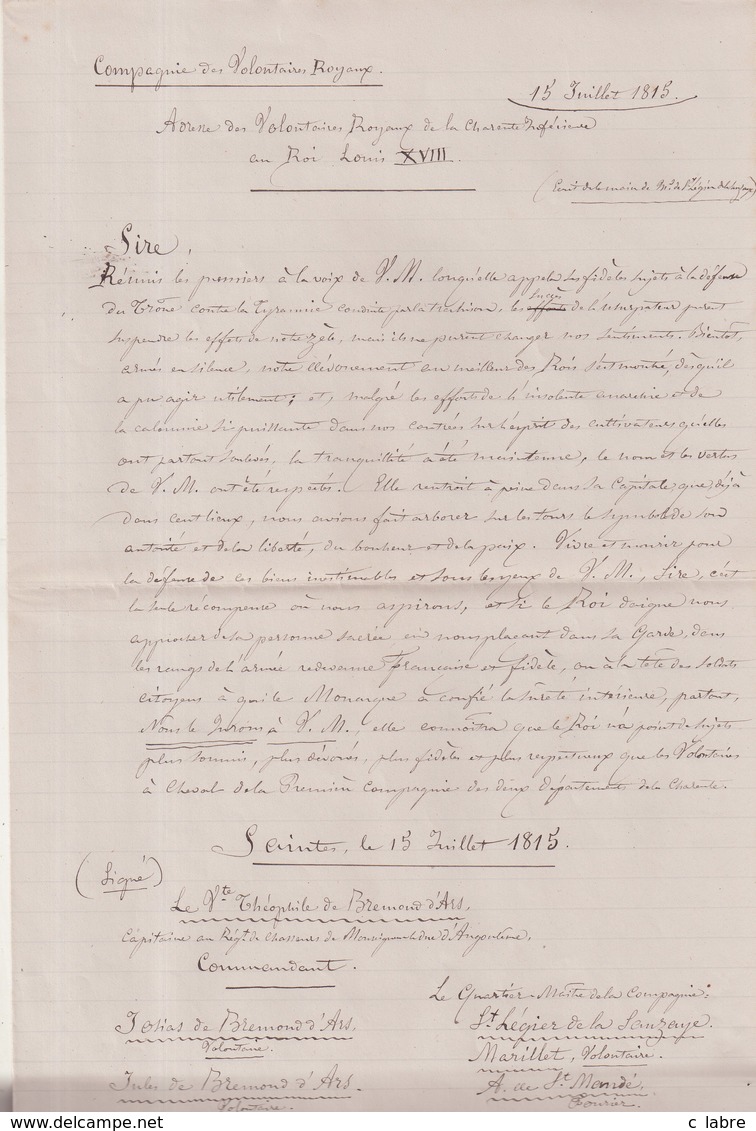 Compagnie des Volontaires Royaux.
15 Juillet 1815.
Adresse des Volontaires Royaux de la Charente Inférieure
au Roi Louis XVIII.
(Ecrit de la main de Mr. de St. Légier de la Sauzaye)
Sire,
Réunis les premiers à la voix de V.M. lorsqu'elle appela ses fidèles sujets à la défense
du Trône contre la Tyrannie conduite par la trahison, les efforts succès de l'usurpateur purent
suspendre les effets de notre zèle, mais ils ne purent changer nos sentiments. Bientôt,
armés en silence, notre dévouement au meilleur des Rois s'est montré, dès qu'il
a pu agir utilement; et, malgré les efforts de l'insolente anarchie et de
la calomnie si puissante dans nos contrées sur l'esprit des cultivateurs qu'elles
ont partout soulevés, la tranquillité a été maintenue, le nom et les vertus
de V.M. ont été respectés. Elle rentroit à peine dans sa Capitale que déjà
dans cent lieux, nous avions fait arborer sur les tours le symbole de son
autorité et de la liberté, du bonheur et de la paix. Vivre et mourir pour
la défense de ces biens inestimables et sous les yeux de V.M., Sire, c'est
la seule récompense où nous aspirons, et si le Roi daigne nous
approcher de sa personne sacrée en nous plaçant dans sa Garde, dans
les rangs de l'armée redevenue Française et fidèle, ou à la tête des soldats
citoyens à qui le Monarque a confié la sûreté intérieure, partout,
Nous le Jurons à V.M., elle connoîtra que le Roi n'a point de sujets
plus soumis, plus dévoués, plus fidèles et plus respectueux que les Volontaires
à Cheval de la Première Compagnie des deux départements de la Charente.
Saintes, le 15 Juillet 1815.
(Signé)
Le Vte Théophile de Bremond d'Ars,
Capitaine au Régt. de Chasseurs de Monseigneur le duc d'Angoulême,
Commandant.
Le Quartier-Maître de la Compagnie:
Josias de Bremond d'Ars,
St. Légier de la Sauzaye.
Volontaire.
Marillet, Volontaire.
Jules de Bremond d'Ars.
A. de St. Mandé,
Volontaire.
Fourier.
c labre